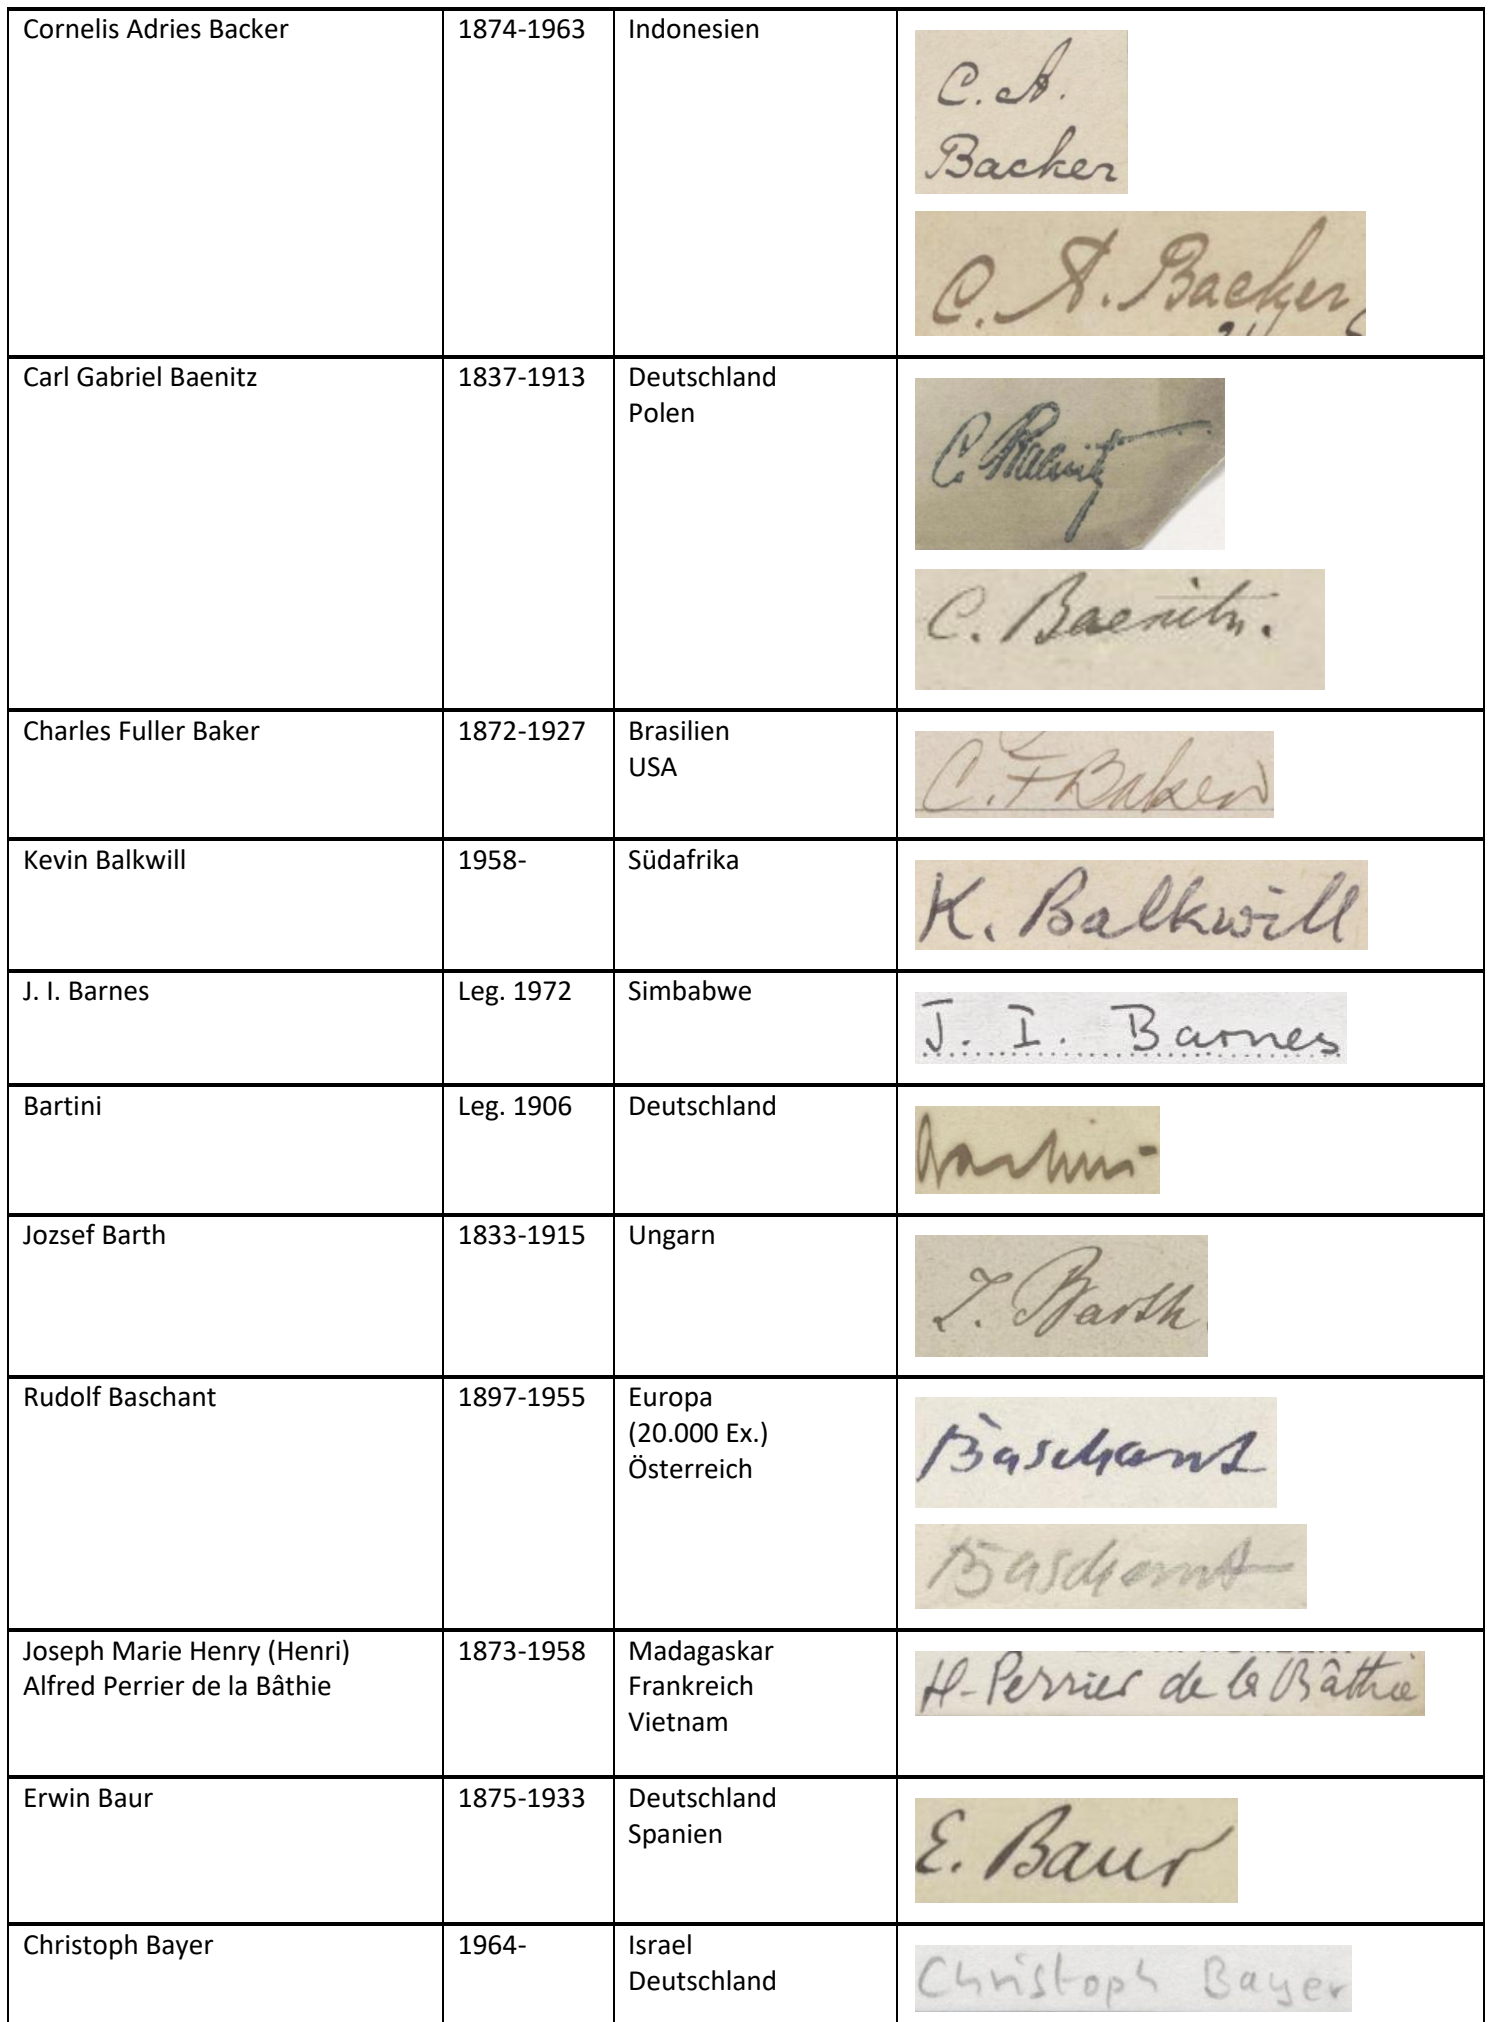 Cornelis Adries Backer 1874-1963 Indonesien
C. A.
Backer
C. A. Backer
Carl Gabriel Baenitz 1837-1913 Deutschland
Polen
C. Baenitz
C. Baenitz.
Charles Fuller Baker 1872-1927 Brasilien
USA
C. F Baker
Kevin Balkwill 1958- Südafrika
K. Balkwill
J. I. Barnes Leg. 1972 Simbabwe
J. I. Barnes
Bartini Leg. 1906 Deutschland
Bartini
Jozsef Barth 1833-1915 Ungarn
J. Barth
Rudolf Baschant 1897-1955 Europa
(20.000 Ex.)
Österreich
Baschant
Baschant
Joseph Marie Henry (Henri) 1873-1958 Madagaskar
Alfred Perrier de la Bâthie Frankreich
Vietnam
H-Perrier de la Bâthie
Erwin Baur 1875-1933 Deutschland
Spanien
E. Baur
Christoph Bayer 1964- Israel
Deutschland
Christoph Bayer